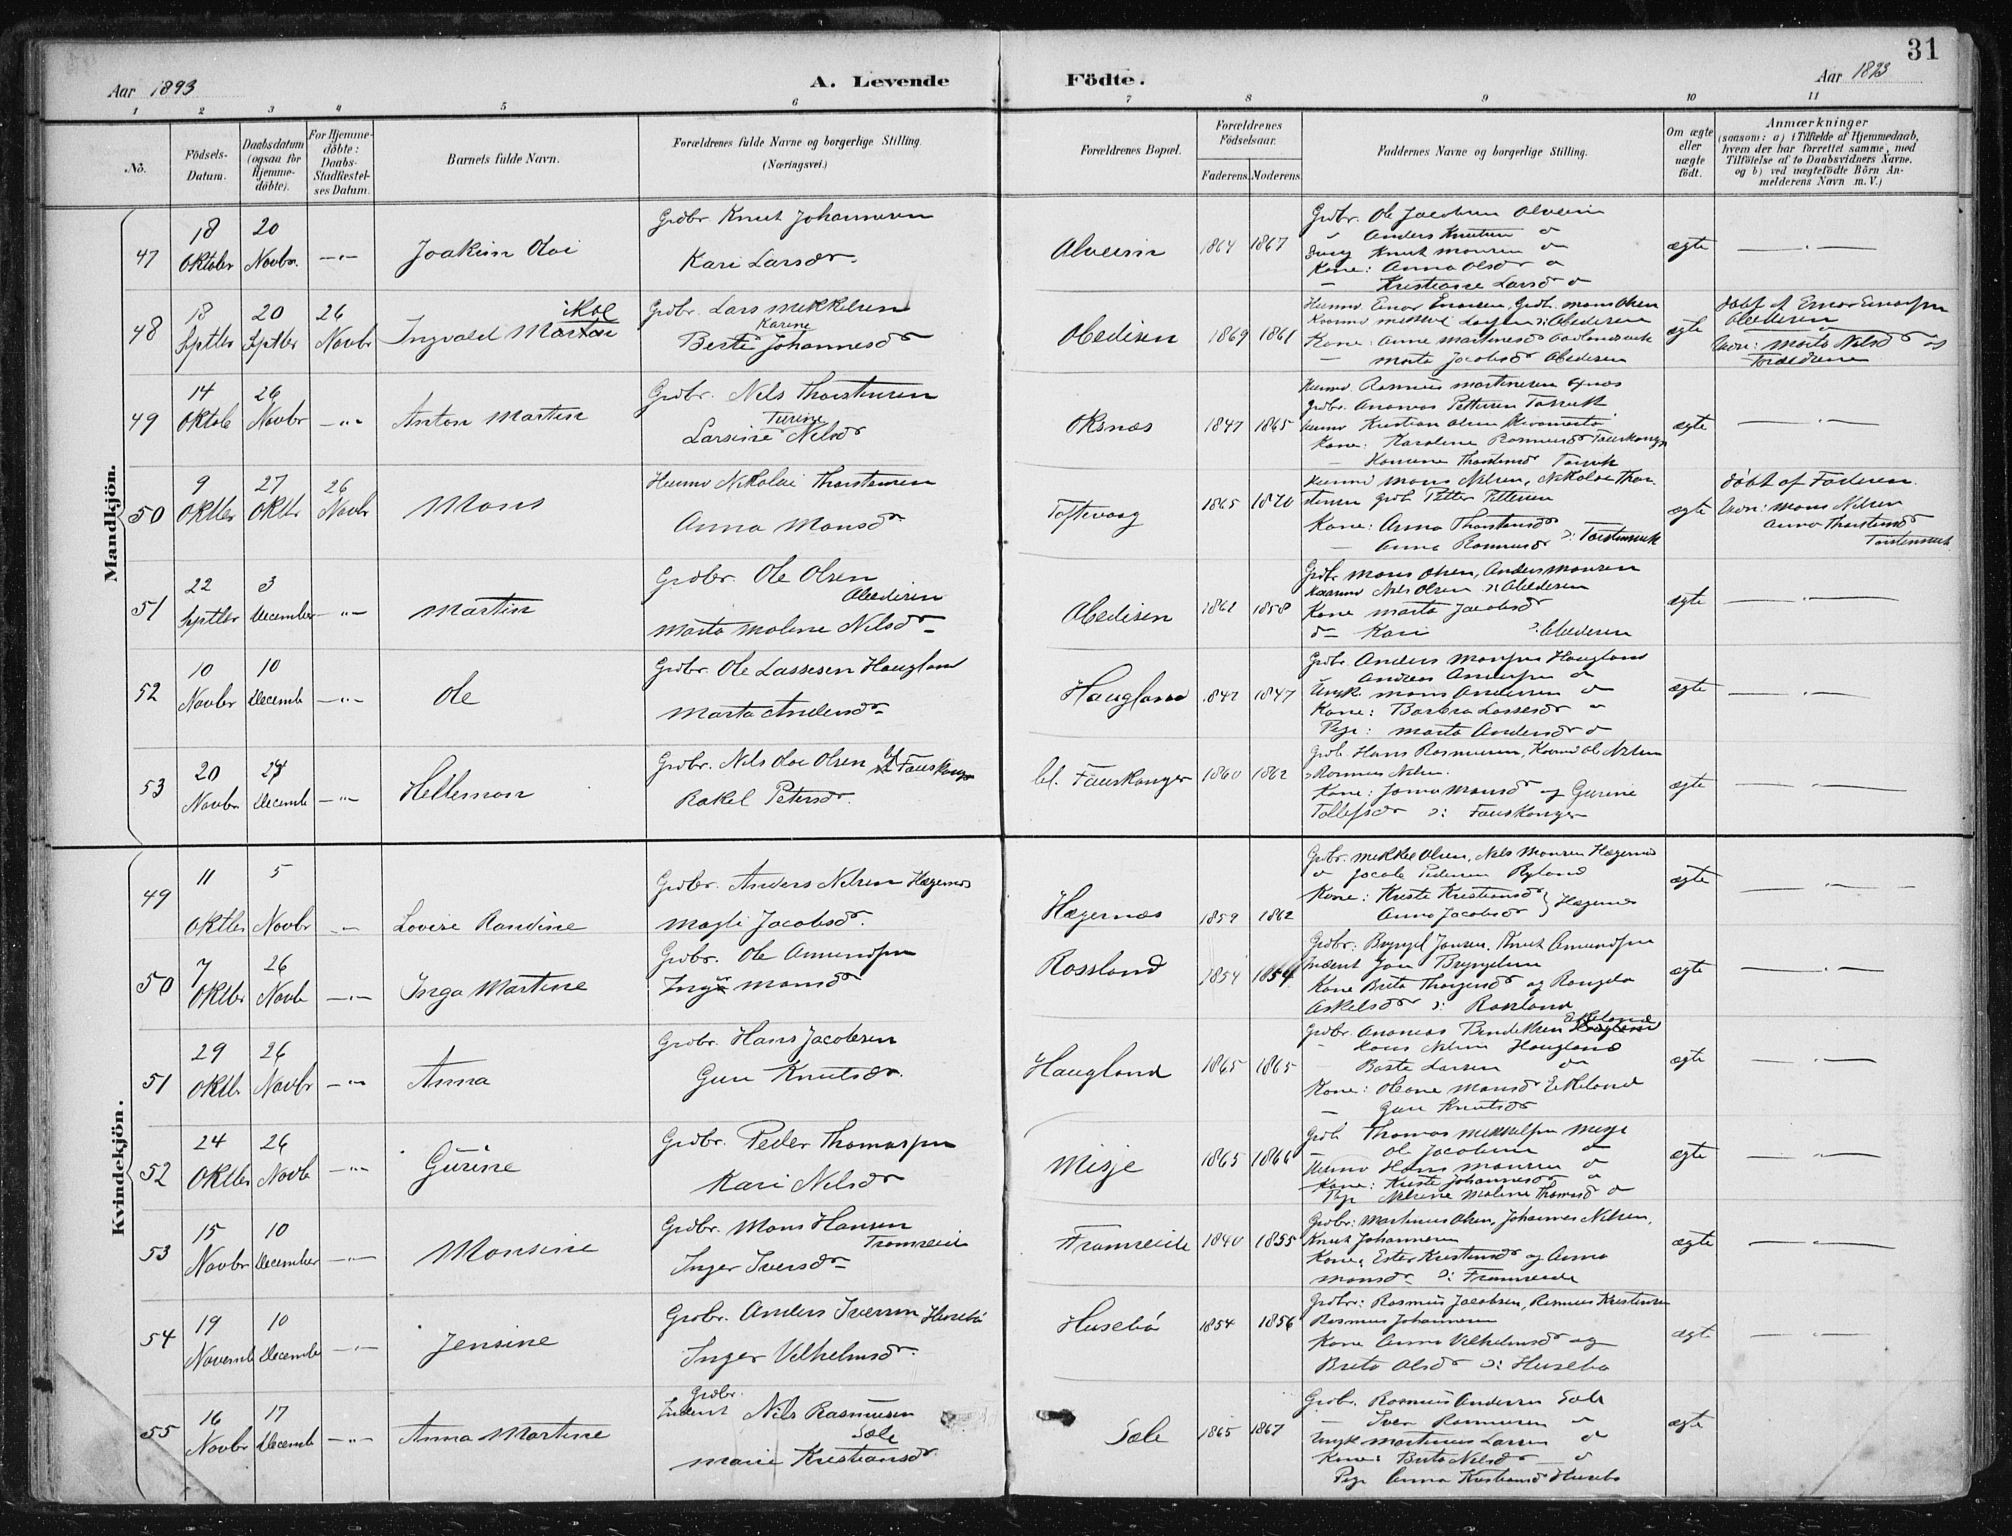 31
Aar 1893
A. Levende
Födte.
Aar 1893
1 2 3 4 5 6 7 8 9 10 11
No.
Födsels-Datum.
Daabsdatum (ogsaa for Hjemme-döbte).
For Hjemme-döbte: Daabs-Stadfæstel-ses Datum.
Barnets fulde Navn.
Forældrenes fulde Navne og borgerlige Stilling. (Næringsvei.)
Forældrenes Bopæl.
Forældrenes Födselsaar.
Faderens. Moderens.
Faddernes Navne og borgerlige Stilling.
Om ægte eller uægte födt.
Anmærkninger
(saasom: a) i Tilfælde af Hjemmedaab,
hvem der har forrettet samme, med
Tilföielse af to Daabsvidners Navne,
og b) ved uægtefödte Börn An-
melderens Navn m. V.)
Mandkjön.
47 18 Oktober 20 Novbr. —"— Joakim Olai
Grdbr. Knut Johannesen
Kari Larsdr.
Alveim 1864 1867
Grdbr. Ole Jacobsen Alveim
" Anders Knutsen do
Ung Knut Monsen do
Kone: Anna Olsdr do
— Kristiane Larsd do
ægte — " —
48 18 Septbr 20 Septbr 26 Novbr Ingvald Martin
Grdbr. Lars Mikkelsen
Karine
Berte Johannesdr
Abedisen 1869 1861
Kone: Anne Martinesd
— Marta Jacobsd Abedisen
ægte
döbt af Einar Einarsen
Abedisen
Vidn: Marta Nilsdr og
Forældrene
49 14 Oktob 26 Novbr —"— Anton Martin
Grdbr. Nils Thorstensen
Larsine Nilsdr
Oksnæs 1847 1865
Husmd. Rasmus Martinesen Oxnæs
Grdbr. Ananias Pettersen
Kone: Karoline Rasmusdr Fauskanger
ægte — " —
50 9 Oktbr 27 Oktbr 26 Novbr Mons
Husmd Nikolai Thorstensen
Anna Monsdr
Toftevaag 1865 1870
Husmd Mons Nilsen, Nikolai Thor-
stensen Grdb. Petter Pettersen
Kone: Anna Thorstensdr
— Anna Rasmusdr ɔ: Torstensvik
ægte
döbt af Faderen.
Vidn: Mons Nilsen
Anna Thorstensdr
Torstensvik
51 22 Septbr 3 December —"— Martin
Grdbr. Ole Olsen
Abedisen
Marta Malene Nilsdr
Abedisen 1861 1858
Grdbr Mons Olsen, Anders Monsen
Nils Olsen ɔ: Abedisen
Kone Marta Jacobsdr
do— Kari ɔ: Abedisen
ægte
52 10 Novbr 10 Decemb —"— Ole
Grdbr. Ole Lassesen Haugland
Marta Andersdr
Haugland 1842 1847
Grdb. Anders Monsen Haugland
— Andreas Andersen do
Ungk. Mons Andersen do
Kone: Barbra Lassesdr "
Pige: Marta Andersdr do
ægte — " —
53 20 Novbr 27 Decemb —"— Hellemon
Grdbr. Nils Olai Olsen Fauskanger
Rakel Petersdr.
bl. Fauskanger 1860 1862
Grdb. Hans Rasmussen, Ole Nilsen
Rasmus Nilsen.
Kone: Monsdr og Gurine
Tollefsdr ɔ: Fauskanger
ægte — " —
Kvindekjön.
49 11 Oktbr 5 Novbr —"— Lovise Randine
Grdbr. Anders Nilsen Hægernes
Magli Jacobsdr.
Hægernæs 1859 1862
Grdbr. Mikkel Olsen, Nils Monsen Hægernes
do Jacob Pedersen Ryland
Kone: Kriste Kristiansdr } Hægernes
Anna Jacobsdr
ægte — " —
50 7 Oktbr 26 Novb —"— Inga Martine
Grdbr. Ole Amundsen
Monsdr
Rossland 1854 1854
Grdbr: Brynjel Jansen, Knut Amundsen
Inderst Jan Brynjelsen
Kone Brita og Rangela
Askelsdr ɔ: Rossland
ægte — " —
51 29 Oktbr 26 Novbr —"— Anna
Grdbr. Hans Jacobsen
Guri Knutsdr.
Haugland 1865 1865
Grdbr. Ananias Bendiksen Eikeland
— Hans Nilsen Haugland
— Larsen do
Kone: Oliane Monsdr Eikeland
— Guri Knutsdr
ægte — " —
52 24 Oktbr 26 Novb —"— Gurine
Grdbr. Peder Thomassen
Kari Nilsdr
Misje 1865 1866
Grdb. Thomas Mikkelsen Misje
— Ole Jacobsen do
Husmd Hans Monsen do
Kone: Kriste Johannesdr do
Pige Nilsine Malene Thomasd do
ægte — " —
53 15 Novbr 10 December —"— Monsine
Grdbr. Mons Hansen
Framreide
Inger Iversdr
Framreide 1840 1855
Grdbr: Martinus Olsen, Johannes Nilsen,
Knut Johannesen
Kone: Ester Kristensdr og Anna
Monsdr ɔ: Framreide
ægte — " —
54 19 Novemb 10 Decembr —"— Jensine
Grdbr. Anders Iversen Husebö
Inger Vilhelmsdr.
Husebö 1854 1856
Grdbr: Rasmus Jacobsen, Rasmus Kristensen
Rasmus Johannesen
Kone Anna Vilhelmsdr og
Brita Olsdr ɔ: Husebö
ægt — " —
55 16 Novbr 17 Decemb —"— Anna Martine
Grdbr.
Inderst Nils Rasmussen
Sæle
Marie Kristiansdr.
Sæle 1865 1867
Grdbr. Rasmus Andersen Sæle
— Iver Rasmussen "
Ungk Martinus Larsen do
Kone: Brita Nilsdr — do
Pige Anna Kristiansd Husebö
ægte